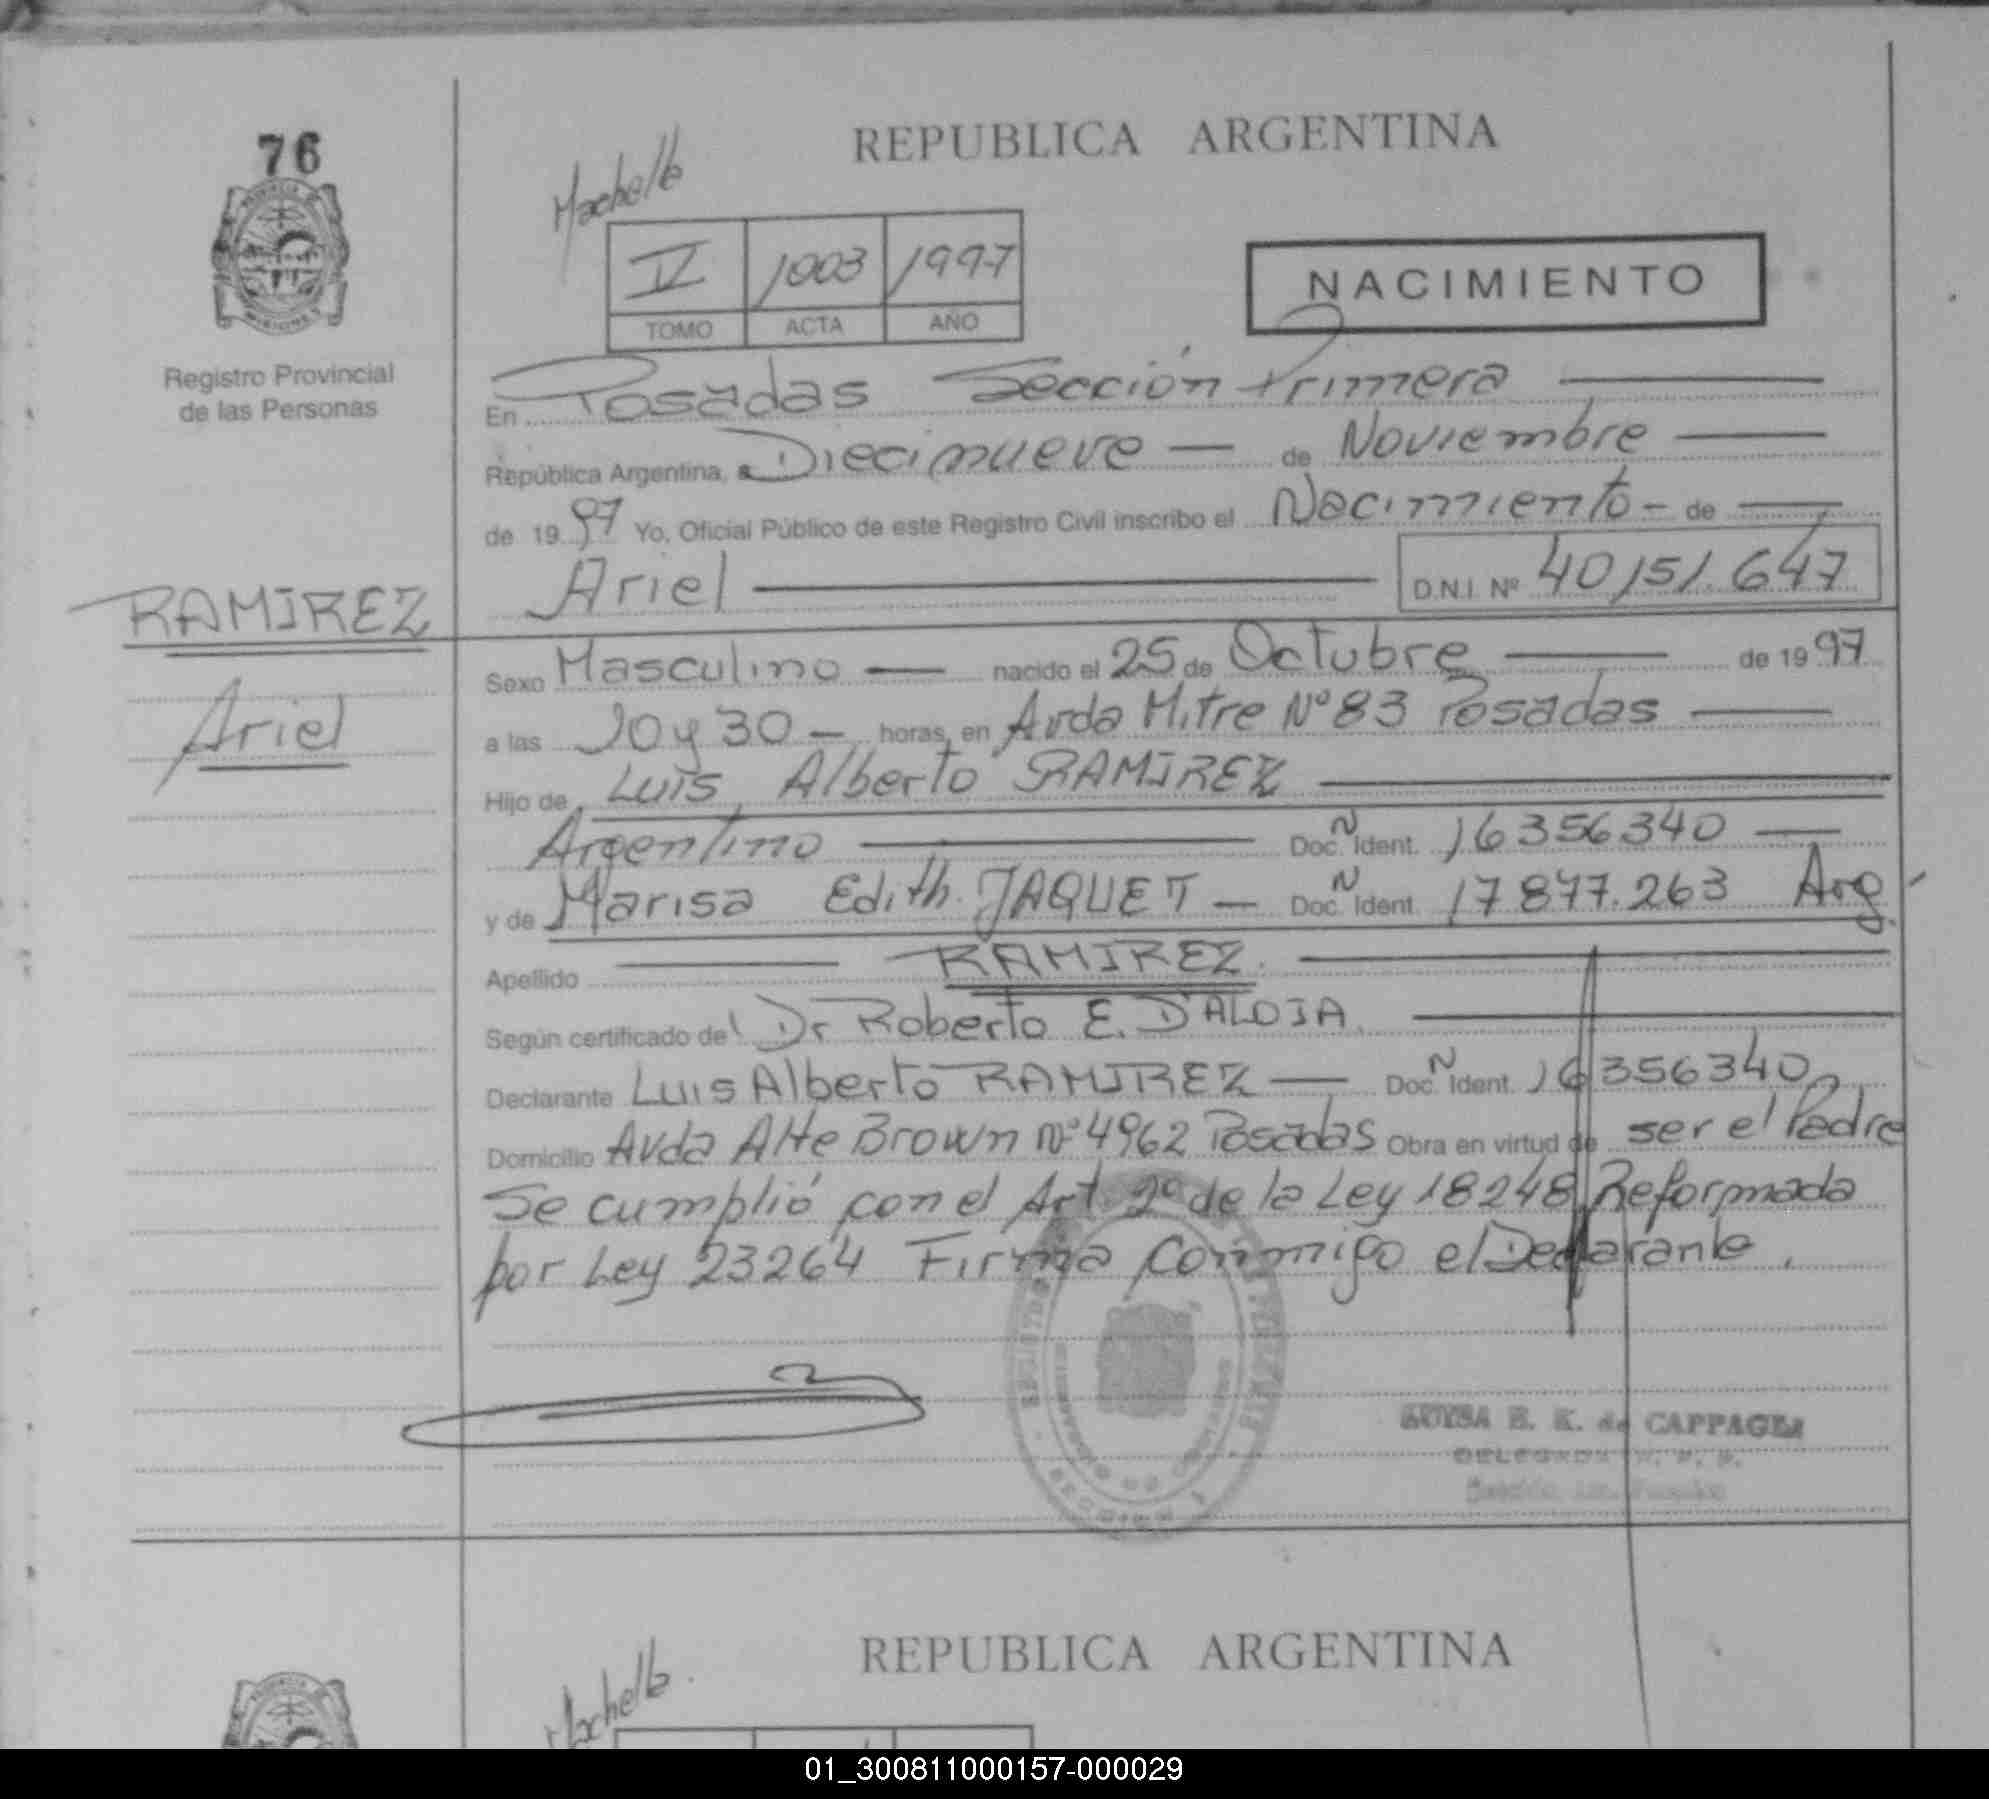 76
REPUBLICA ARGENTINA
Machelle
V 1003 1997
TOMO ACTA AÑO
NACIMIENTO
Registro Provincial
de las Personas
En Posadas Sección Primera
República Argentina, a Diecinueve de Noviembre
de 1997 Yo, Oficial Público de este Registro Civil inscribo el Nacimiento de
Ariel D.N.I. Nº 40151.647
RAMIREZ
Ariel
Sexo Masculino nacido el 25 de Octubre de 1997
a las 20 y 30 horas, en Avda Mitre Nº 83 Posadas
Hijo de Luis Alberto RAMIREZ
Argentino Doc. N Ident. 16356340
y de Marisa Edith JAQUET Doc. N Ident. 17877.263 Arg.
Apellido RAMIREZ.
Según certificado del Dr Roberto E. D'ALOIA
Declarante Luis Alberto RAMIREZ Doc. N Ident. 16356340
Domicilio Avda Alte Brown Nº 4962 Posadas Obra en virtud de ser el Padre
Se cumplió con el Art 2º de la Ley 18248 Reformada
por Ley 23264 Firma conmigo el Declarante.
E. K. de CAPPAGLI
REPUBLICA ARGENTINA
Machelle.
01_300811000157-000029